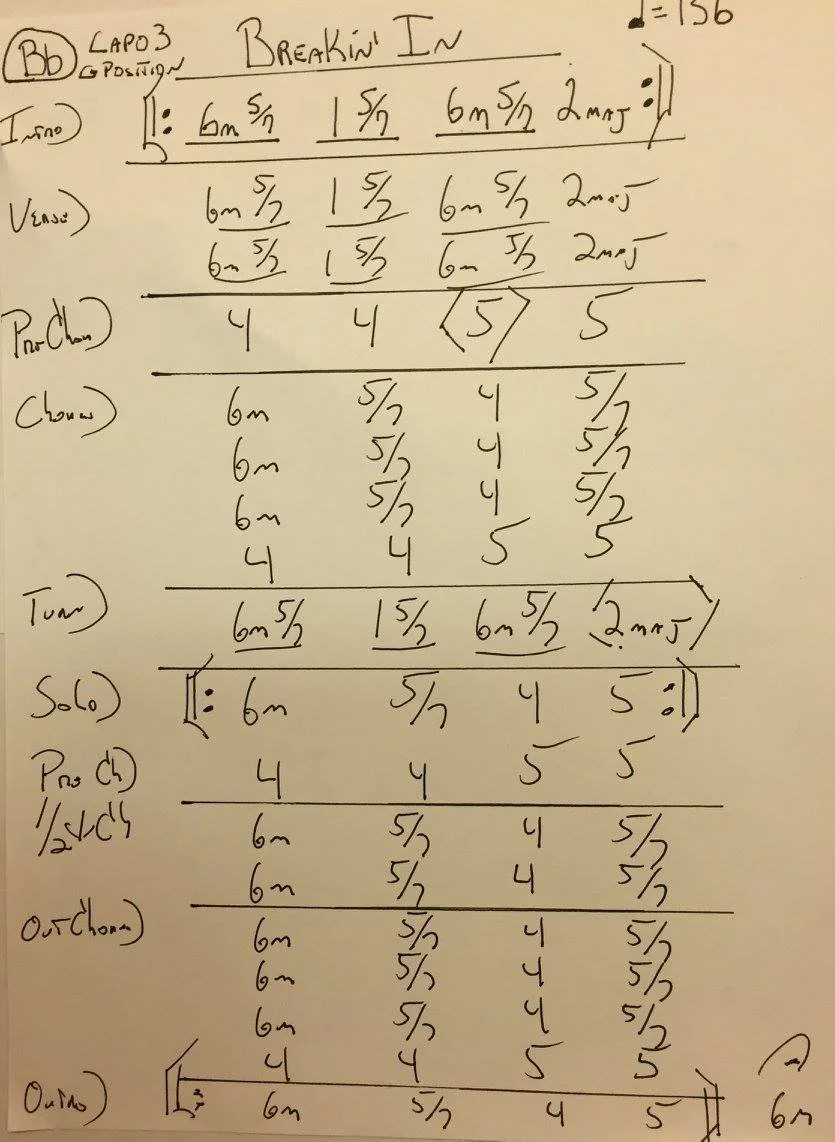 ♩=156
Bb CAPO 3 BREAKIN' IN
G POSITION
Intro) 𝄆 6m 5/7 1 5/7 6m 5/7 2maj 𝄇
Verse) 6m 5/7 1 5/7 6m 5/7 2maj
6m 5/7 1 5/7 6m 5/7 2maj
Pre Chor) 4 4 <5> 5
Chorus) 6m 5/7 4 5/7
6m 5/7 4 5/7
6m 5/7 4 5/2
4 4 5 5
Turn) 6m 5/7 1 5/7 6m 5/7 <2maj>
Solo) 𝄆 6m 5/7 4 5 𝄇
Pre Ch) 4 4 5 5
1/2 Ch 6m 5/7 4 5/7
6m 5/7 4 5/7
Out Chorus) 6m 5/7 4 5/7
6m 5/7 4 5/7
6m 5/7 4 5/2
4 4 5 5
Outro) 𝄆 6m 5/7 4 5 𝄇 6m